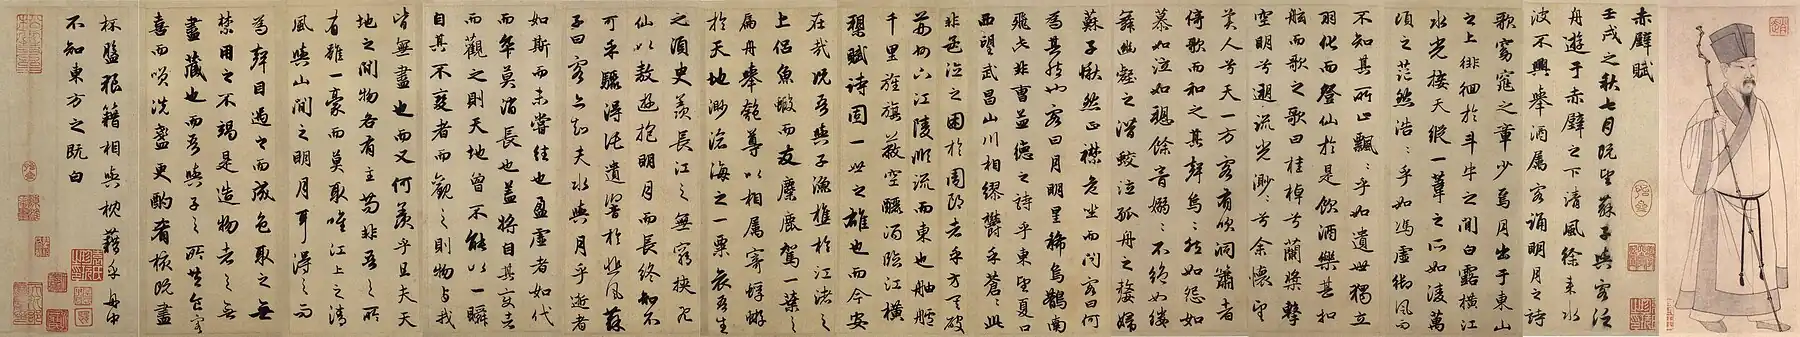 赤壁賦
壬戌之秋七月既望蘇子與客泛
舟遊于赤壁之下清風徐來水
波不興舉酒属客誦明月之詩
歌窈窕之章少焉月出于東山
之上徘徊於斗牛之間白露橫江
水光接天縱一葦之所如淩萬
頃之茫然浩〻乎如馮虛御風而
不知其所止飄〻乎如遺世獨立
羽化而登仙於是飲酒樂甚扣
舷而歌之歌曰桂棹兮蘭槳擊
空明兮遡流光渺〻兮余懷望
美人兮天一方客有吹洞簫者
倚歌而和之其聲烏〻然如怨如
慕如泣如訴餘音嫋〻不絕如縷
舞幽壑之潛蛟泣孤舟之嫠婦
蘇子愀然正襟危坐而問客曰何
為其然也客曰月明星稀烏鵲南
飛此非曹孟德之詩乎東望夏口
西望武昌山川相繆欝乎蒼〻此
非孟德之困於周郎者乎方其破
荊州下江陵順流而東也舳艫
千里旌旗蔽空釃酒臨江橫
槊賦詩固一世之雄也而今安
在哉況吾與子漁樵於江渚之
上侶魚蝦而友麋鹿駕一葉之
扁舟舉匏尊以相属寄蜉蝣
於天地渺滄海之一粟哀吾生
之須臾羨長江之無窮挾飛
仙以敖遊抱明月而長終知不
可乎驟得託遺響於悲風蘇
子曰客亦知夫水與月乎逝者
如斯而未嘗往也盈虛者如代
而卒莫消長也蓋將自其變者
而觀之則天地曾不能以一瞬
自其不變者而觀之則物与我
皆無盡也而又何羨乎且夫天
地之間物各有主苟非吾之所
有雖一豪而莫取唯江上之清
風與山間之明月耳得之而
為聲目遇之而成色取之無
禁用之不竭是造物者之無
盡藏也而吾與子之所共食客
喜而笑洗盞更酌肴核既盡
杯盤狼籍相與枕藉乎舟中
不知東方之既白